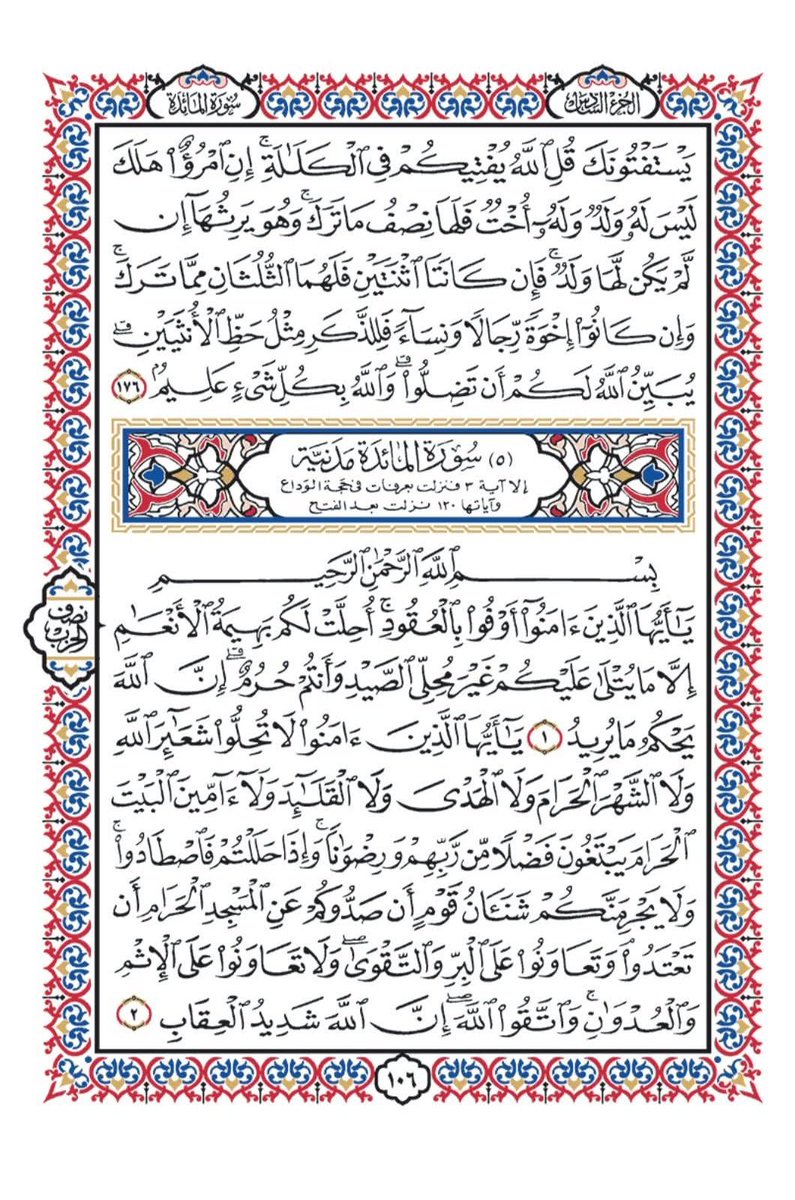 الجزء السادس
سورة المائدة
يَسْتَفْتُونَكَ قُلِ ٱللَّهُ يُفْتِيكُمْ فِى ٱلْكَلَٰلَةِ ۚ إِنِ ٱمْرُؤٌا۟ هَلَكَ
لَيْسَ لَهُۥ وَلَدٌ وَلَهُۥٓ أُخْتٌ فَلَهَا نِصْفُ مَا تَرَكَ ۚ وَهُوَ يَرِثُهَآ إِن
لَّمْ يَكُن لَّهَا وَلَدٌ ۚ فَإِن كَانَتَا ٱثْنَتَيْنِ فَلَهُمَا ٱلثُّلُثَانِ مِمَّا تَرَكَ ۚ
وَإِن كَانُوٓا۟ إِخْوَةً رِّجَالًا وَنِسَآءً فَلِلذَّكَرِ مِثْلُ حَظِّ ٱلْأُنثَيَيْنِ ۗ
يُبَيِّنُ ٱللَّهُ لَكُمْ أَن تَضِلُّوا۟ ۗ وَٱللَّهُ بِكُلِّ شَىْءٍ عَلِيمٌۢ ١٧٦
(٥) سُورَة المَائدَة مَدَنيَّة
إلا آية ٣ فنزلت بعرفات في حجة الوداع
وآياتها ١٢٠ نزلت بعد الفتح
بِسْمِ ٱللَّهِ ٱلرَّحْمَٰنِ ٱلرَّحِيمِ
يَٰٓأَيُّهَا ٱلَّذِينَ ءَامَنُوٓا۟ أَوْفُوا۟ بِٱلْعُقُودِ ۚ أُحِلَّتْ لَكُم بَهِيمَةُ ٱلْأَنْعَٰمِ
نصف الحزب
إِلَّا مَا يُتْلَىٰ عَلَيْكُمْ غَيْرَ مُحِلِّى ٱلصَّيْدِ وَأَنتُمْ حُرُمٌ ۗ إِنَّ ٱللَّهَ
يَحْكُمُ مَا يُرِيدُ ١ يَٰٓأَيُّهَا ٱلَّذِينَ ءَامَنُوا۟ لَا تُحِلُّوا۟ شَعَٰٓئِرَ ٱللَّهِ
وَلَا ٱلشَّهْرَ ٱلْحَرَامَ وَلَا ٱلْهَدْىَ وَلَا ٱلْقَلَٰٓئِدَ وَلَآ ءَآمِّينَ ٱلْبَيْتَ
ٱلْحَرَامَ يَبْتَغُونَ فَضْلًا مِّن رَّبِّهِمْ وَرِضْوَٰنًا ۚ وَإِذَا حَلَلْتُمْ فَٱصْطَادُوا۟ ۚ
وَلَا يَجْرِمَنَّكُمْ شَنَـَٔانُ قَوْمٍ أَن صَدُّوكُمْ عَنِ ٱلْمَسْجِدِ ٱلْحَرَامِ أَن
تَعْتَدُوا۟ وَتَعَاوَنُوا۟ عَلَى ٱلْبِرِّ وَٱلتَّقْوَىٰ ۖ وَلَا تَعَاوَنُوا۟ عَلَى ٱلْإِثْمِ
وَٱلْعُدْوَٰنِ ۚ وَٱتَّقُوا۟ ٱللَّهَ ۖ إِنَّ ٱللَّهَ شَدِيدُ ٱلْعِقَابِ ٢
١٠٦